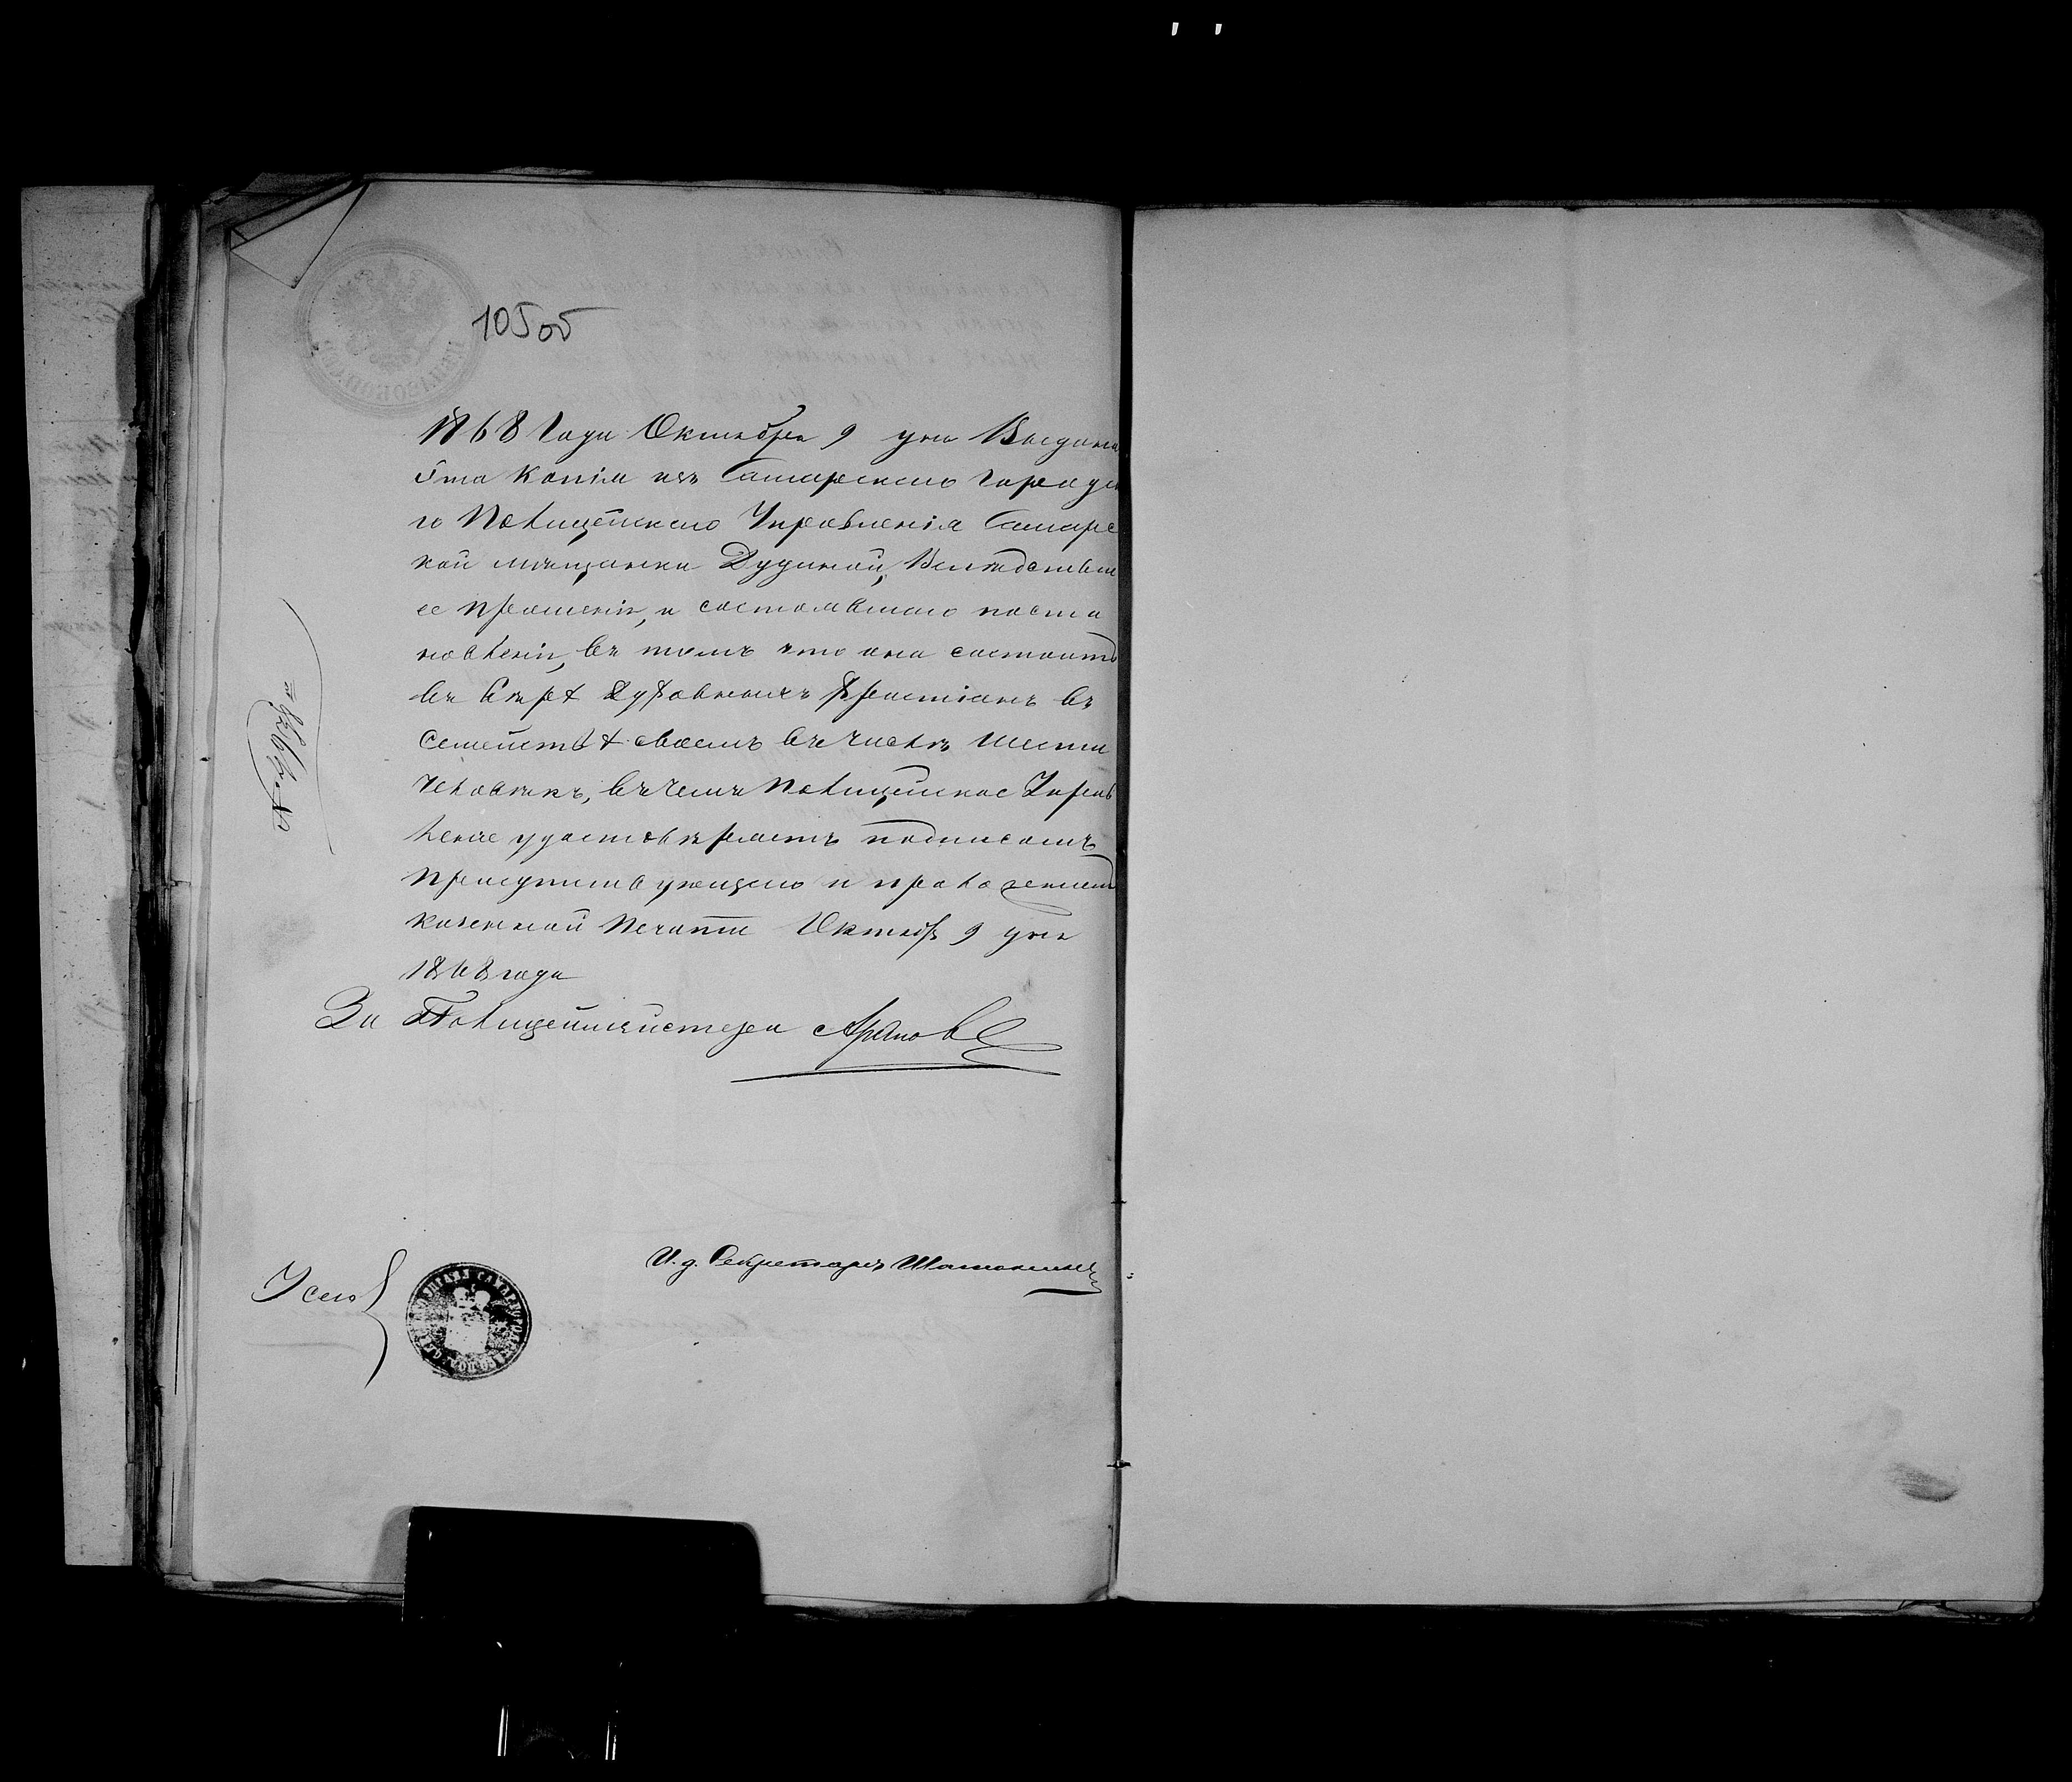 105об
1868 года Октября 9 дня Выдана
эта копія изъ Самарскаго Городск
го Полицейскаго Управленія Самарс
кой мѣщанки Дудиной, Вслѣдствіи
ее прошенія, и состоявшаго поста
новленія, въ томъ что она состоитъ
въ вѣрѣ Духовныхъ Христіанъ въ
Семействѣ своемъ въ числѣ шести
человѣкъ, въ чемъ Полицейское Управ
леніе удостовѣряетъ подписомъ
Присутствующаго и приложеніемъ
казенной печати Октября 9 дня
1868 года
За Полицеймейстера
И. д. Секретаря